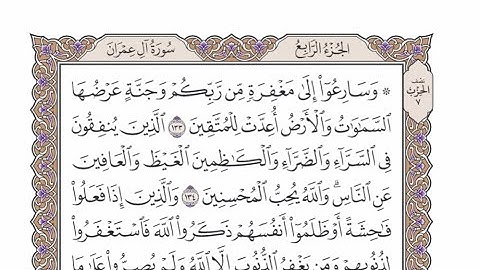 سُورَةُ آلِ عِمْرَانَ
الجُزْءُ الرَّابِعُ
نصف
الحِزْب
٧
۞ وَسَارِعُوٓا۟ إِلَىٰ مَغْفِرَةٍ مِّن رَّبِّكُمْ وَجَنَّةٍ عَرْضُهَا
ٱلسَّمَٰوَٰتُ وَٱلْأَرْضُ أُعِدَّتْ لِلْمُتَّقِينَ ١٣٣ ٱلَّذِينَ يُنفِقُونَ
فِى ٱلسَّرَّآءِ وَٱلضَّرَّآءِ وَٱلْكَٰظِمِينَ ٱلْغَيْظَ وَٱلْعَافِينَ
عَنِ ٱلنَّاسِ ۗ وَٱللَّهُ يُحِبُّ ٱلْمُحْسِنِينَ ١٣٤ وَٱلَّذِينَ إِذَا فَعَلُوا۟
فَٰحِشَةً أَوْ ظَلَمُوٓا۟ أَنفُسَهُمْ ذَكَرُوا۟ ٱللَّهَ فَٱسْتَغْفَرُوا۟
لِذُنُوبِهِمْ وَمَن يَغْفِرُ ٱلذُّنُوبَ إِلَّا ٱللَّهُ وَلَمْ يُصِرُّوا۟ عَلَىٰ مَا